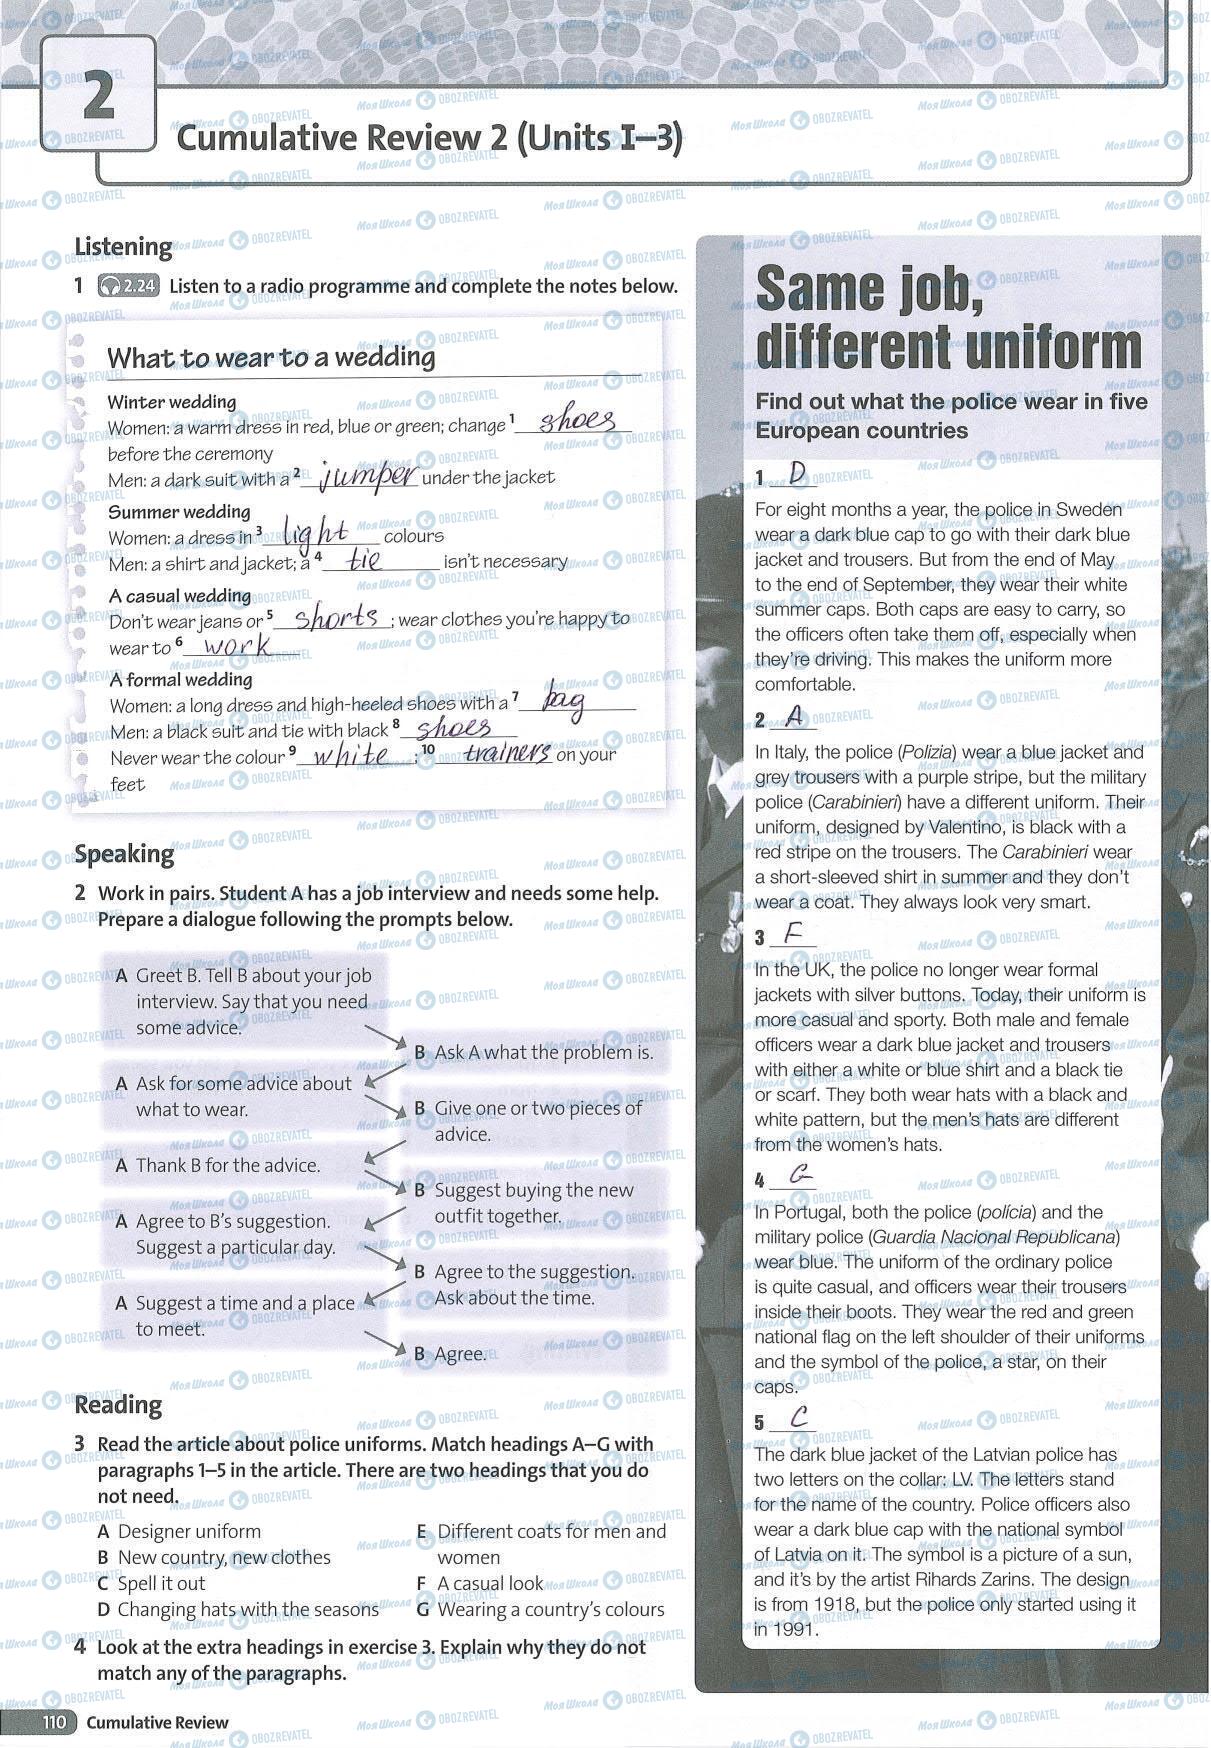 2
Cumulative Review 2 (Units I–3)
Listening
1 2.24 Listen to a radio programme and complete the notes below.
What to wear to a wedding
Winter wedding
Women: a warm dress in red, blue or green; change 1 shoes
before the ceremony
Men: a dark suit with a 2 jumper under the jacket
Summer wedding
Women: a dress in 3 light colours
Men: a shirt and jacket; a 4 tie isn't necessary
A casual wedding
Don't wear jeans or 5 shorts; wear clothes you're happy to
wear to 6 work
A formal wedding
Women: a long dress and high-heeled shoes with a 7 bag
Men: a black suit and tie with black 8 shoes
Never wear the colour 9 white; 10 trainers on your
feet
Speaking
2 Work in pairs. Student A has a job interview and needs some help.
Prepare a dialogue following the prompts below.
A Greet B. Tell B about your job
interview. Say that you need
some advice.
B Ask A what the problem is.
A Ask for some advice about
what to wear.
B Give one or two pieces of
advice.
A Thank B for the advice.
B Suggest buying the new
outfit together.
A Agree to B's suggestion.
Suggest a particular day.
B Agree to the suggestion.
Ask about the time.
A Suggest a time and a place
to meet.
B Agree.
Reading
3 Read the article about police uniforms. Match headings A–G with
paragraphs 1–5 in the article. There are two headings that you do
not need.
A Designer uniform
B New country, new clothes
C Spell it out
D Changing hats with the seasons
E Different coats for men and
women
F A casual look
G Wearing a country's colours
4 Look at the extra headings in exercise 3. Explain why they do not
match any of the paragraphs.
110 Cumulative Review
Same job,
different uniform
Find out what the police wear in five
European countries
1 D
For eight months a year, the police in Sweden
wear a dark blue cap to go with their dark blue
jacket and trousers. But from the end of May
to the end of September, they wear their white
summer caps. Both caps are easy to carry, so
the officers often take them off, especially when
they're driving. This makes the uniform more
comfortable.
2 A
In Italy, the police (Polizia) wear a blue jacket and
grey trousers with a purple stripe, but the military
police (Carabinieri) have a different uniform. Their
uniform, designed by Valentino, is black with a
red stripe on the trousers. The Carabinieri wear
a short-sleeved shirt in summer and they don't
wear a coat. They always look very smart.
3 F
In the UK, the police no longer wear formal
jackets with silver buttons. Today, their uniform is
more casual and sporty. Both male and female
officers wear a dark blue jacket and trousers
with either a white or blue shirt and a black tie
or scarf. They both wear hats with a black and
white pattern, but the men's hats are different
from the women's hats.
4 G
In Portugal, both the police (polícia) and the
military police (Guardia Nacional Republicana)
wear blue. The uniform of the ordinary police
is quite casual, and officers wear their trousers
inside their boots. They wear the red and green
national flag on the left shoulder of their uniforms
and the symbol of the police, a star, on their
caps.
5 C
The dark blue jacket of the Latvian police has
two letters on the collar: LV. The letters stand
for the name of the country. Police officers also
wear a dark blue cap with the national symbol
of Latvia on it. The symbol is a picture of a sun,
and it's by the artist Rihards Zarins. The design
is from 1918, but the police only started using it
in 1991.
Моя Школа OBOZREVATEL